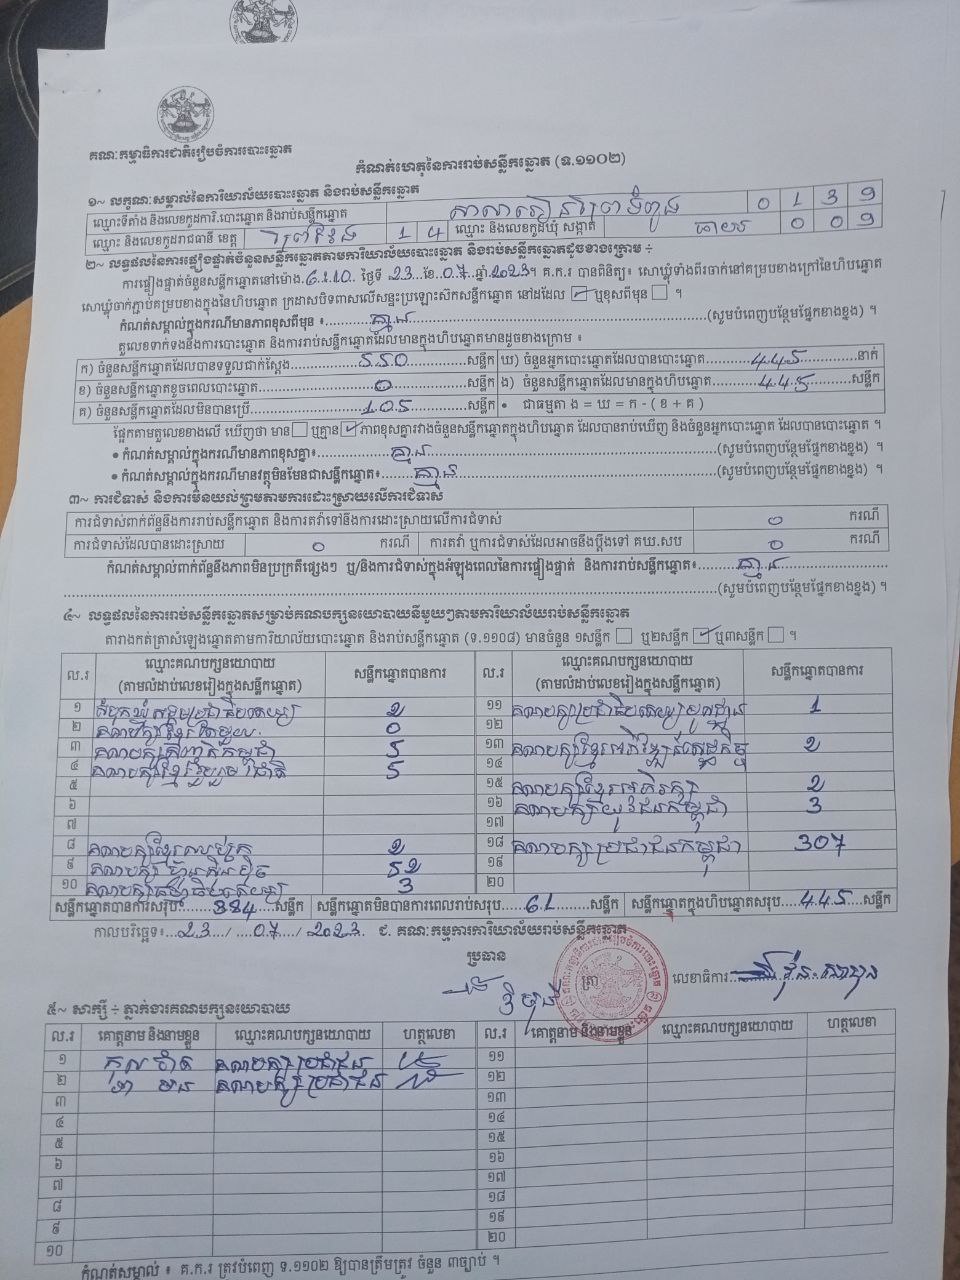 គណៈកម្មាធិការជាតិរៀបចំការបោះឆ្នោត
កំណត់ហេតុនៃការរាប់សន្លឹកឆ្នោត (ទ.១១០២)
១~ លក្ខណៈសម្គាល់នៃការិយាល័យបោះឆ្នោត និងរាប់សន្លឹកឆ្នោត
ឈ្មោះទីតាំង និងលេខកូដការិ.បោះឆ្នោត និងរាប់សន្លឹកឆ្នោត សាលារៀន 0 1 3 9
ឈ្មោះ និងលេខកូដរាជធានី ខេត្ត ព្រៃវែង 1 4 ឈ្មោះ និងលេខកូដឃុំ សង្កាត់ 0 0 9
២~ លទ្ធផលនៃការផ្ទៀងផ្ទាត់ចំនួនសន្លឹកឆ្នោតតាមការិយាល័យបោះឆ្នោត និងរាប់សន្លឹកឆ្នោតដូចខាងក្រោម ÷
ការផ្ទៀងផ្ទាត់ចំនួនសន្លឹកឆ្នោតនៅម៉ោង ថ្ងៃទី 23 ខែ 07 ឆ្នាំ 2023។ គ.ក.រ បានពិនិត្យ៖ សោឃ្លុំទាំងពីរចាក់នៅគម្របខាងក្រៅនៃហិបឆ្នោត
សោឃ្លុំចាក់ភ្ជាប់គម្របខាងក្នុងនៃហិបឆ្នោត ក្រដាសបិទពាសលើសន្ទះប្រឡោះស៊កសន្លឹកឆ្នោត នៅដដែល ☑ ឬខុសពីមុន ☐ ។
កំណត់សម្គាល់ក្នុងករណីមានភាពខុសពីមុន ៖ គ្មាន (សូមបំពេញបន្ថែមផ្នែកខាងខ្នង) ។
តួលេខទាក់ទងនឹងការបោះឆ្នោត និងការរាប់សន្លឹកឆ្នោតដែលមានក្នុងហិបឆ្នោតមានដូចខាងក្រោម ៖
ក) ចំនួនសន្លឹកឆ្នោតដែលបានទទួលជាក់ស្តែង 550 សន្លឹក ឃ) ចំនួនអ្នកបោះឆ្នោតដែលបានបោះឆ្នោត 445 នាក់
ខ) ចំនួនសន្លឹកឆ្នោតខូចពេលបោះឆ្នោត 0 សន្លឹក ង) ចំនួនសន្លឹកឆ្នោតដែលមានក្នុងហិបឆ្នោត 445 សន្លឹក
គ) ចំនួនសន្លឹកឆ្នោតដែលមិនបានប្រើ 105 សន្លឹក • ជាធម្មតា ង = ឃ = ក - ( ខ + គ )
ផ្អែកតាមតួលេខខាងលើ ឃើញថា មាន ☐ ឬគ្មាន ☑ ភាពខុសគ្នារវាងចំនួនសន្លឹកឆ្នោតក្នុងហិបឆ្នោត ដែលបានរាប់ឃើញ និងចំនួនអ្នកបោះឆ្នោត ដែលបានបោះឆ្នោត ។
• កំណត់សម្គាល់ក្នុងករណីមានភាពខុសគ្នា៖ គ្មាន (សូមបំពេញបន្ថែមផ្នែកខាងខ្នង) ។
• កំណត់សម្គាល់ក្នុងករណីមានវត្ថុមិនមែនជាសន្លឹកឆ្នោត៖ គ្មាន (សូមបំពេញបន្ថែមផ្នែកខាងខ្នង) ។
៣~ ការជំទាស់ និងការមិនយល់ព្រមតាមការដោះស្រាយលើការជំទាស់
ការជំទាស់ពាក់ព័ន្ធនឹងការរាប់សន្លឹកឆ្នោត និងការតវ៉ាទៅនឹងការដោះស្រាយលើការជំទាស់ 0 ករណី
ការជំទាស់ដែលបានដោះស្រាយ 0 ករណី ការតវ៉ា ឬការជំទាស់ដែលអាចនឹងប្តឹងទៅ គឃ.សប 0 ករណី
កំណត់សម្គាល់ពាក់ព័ន្ធនឹងភាពមិនប្រក្រតីផ្សេងៗ ឬ/និងការជំទាស់ក្នុងអំឡុងពេលនៃការផ្ទៀងផ្ទាត់ និងការរាប់សន្លឹកឆ្នោត៖ គ្មាន
(សូមបំពេញបន្ថែមផ្នែកខាងខ្នង) ។
៤~ លទ្ធផលនៃការរាប់សន្លឹកឆ្នោតសម្រាប់គណបក្សនយោបាយនីមួយៗតាមការិយាល័យរាប់សន្លឹកឆ្នោត
តារាងកត់ត្រាសំឡេងឆ្នោតតាមការិយាល័យបោះឆ្នោត និងរាប់សន្លឹកឆ្នោត (ទ.១១០៨) មានចំនួន ១សន្លឹក ☐ ឬ២សន្លឹក ☑ ឬ៣សន្លឹក ☐ ។
ល.រ ឈ្មោះគណបក្សនយោបាយ (តាមលំដាប់លេខរៀងក្នុងសន្លឹកឆ្នោត) សន្លឹកឆ្នោតបានការ ល.រ ឈ្មោះគណបក្សនយោបាយ (តាមលំដាប់លេខរៀងក្នុងសន្លឹកឆ្នោត) សន្លឹកឆ្នោតបានការ
១ សំបុកឃ្មុំសង្គមប្រជាធិបតេយ្យ 2 ១១ គណបក្សប្រជាធិបតេយ្យមូលដ្ឋាន 1
២ គណបក្សខ្មែរតែមួយ 0 ១២
៣ គណបក្សសញ្ជាតិកម្ពុជា 5 ១៣ គណបក្សខ្មែរអភិវឌ្ឍន៍សេដ្ឋកិច្ច 2
៤ គណបក្សខ្មែររួបរួមជាតិ 5 ១៤
៥ ១៥ គណបក្សខ្មែរអភិរក្ស 2
៦ ១៦ គណបក្សយុវជនកម្ពុជា 3
៧ ១៧
៨ គណបក្សខ្មែរឈប់ក្រ 2 ១៨ គណបក្សប្រជាជនកម្ពុជា 307
៩ គណបក្ស ហ្វ៊ុនស៊ិនប៉ិច 52 ១៩
១០ គណបក្សធម្មាធិបតេយ្យ 3 ២០
សន្លឹកឆ្នោតបានការសរុប 384 សន្លឹក សន្លឹកឆ្នោតមិនបានការពេលរាប់សរុប 61 សន្លឹក សន្លឹកឆ្នោតក្នុងហិបឆ្នោតសរុប 445 សន្លឹក
កាលបរិច្ឆេទ៖ 23 / 07 / 2023 ជ. គណៈកម្មការការិយាល័យរាប់សន្លឹកឆ្នោត
ប្រធាន ត្រា លេខាធិការ
៥~ សាក្សី ÷ ភ្នាក់ងារគណបក្សនយោបាយ
ល.រ គោត្តនាម និងនាមខ្លួន ឈ្មោះគណបក្សនយោបាយ ហត្ថលេខា ល.រ គោត្តនាម និងនាមខ្លួន ឈ្មោះគណបក្សនយោបាយ ហត្ថលេខា
១ គណបក្សប្រជាជន ១១
២ គណបក្សប្រជាជន ១២
៣ ១៣
៤ ១៤
៥ ១៥
៦ ១៦
៧ ១៧
៨ ១៨
៩ ១៩
១០ ២០
កំណត់សម្គាល់ ៖ គ.ក.រ ត្រូវបំពេញ ទ.១១០២ ឱ្យបានត្រឹមត្រូវ ចំនួន ៣ច្បាប់ ។